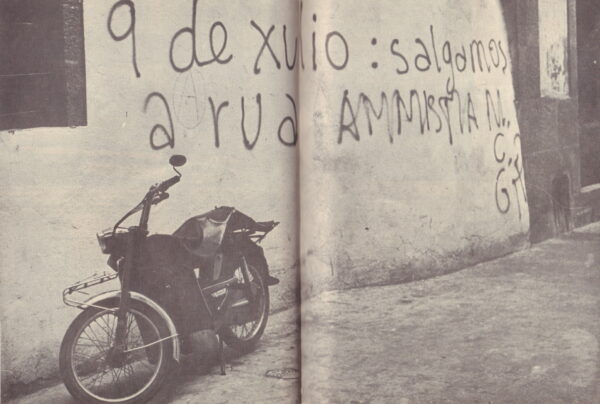 9 de xulio : salgamos
a rua AMMISTIA N..
C.
G.